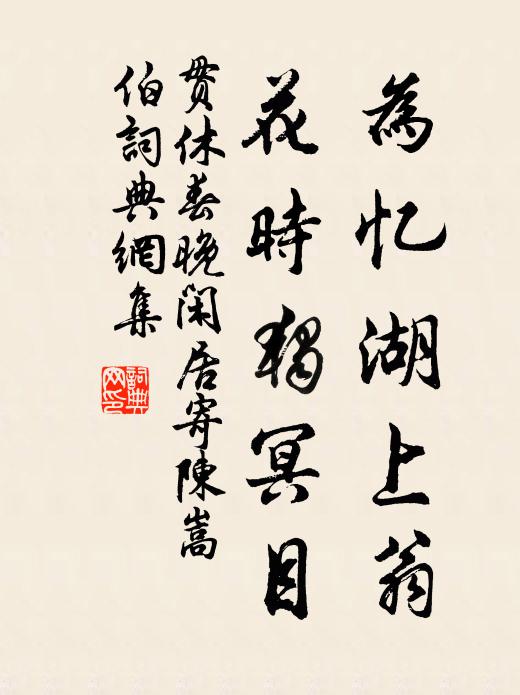 為忆湖上翁
花時獨冥目
貫休春晚閑居寄陳嵩
伯詞典網集
詞典網印